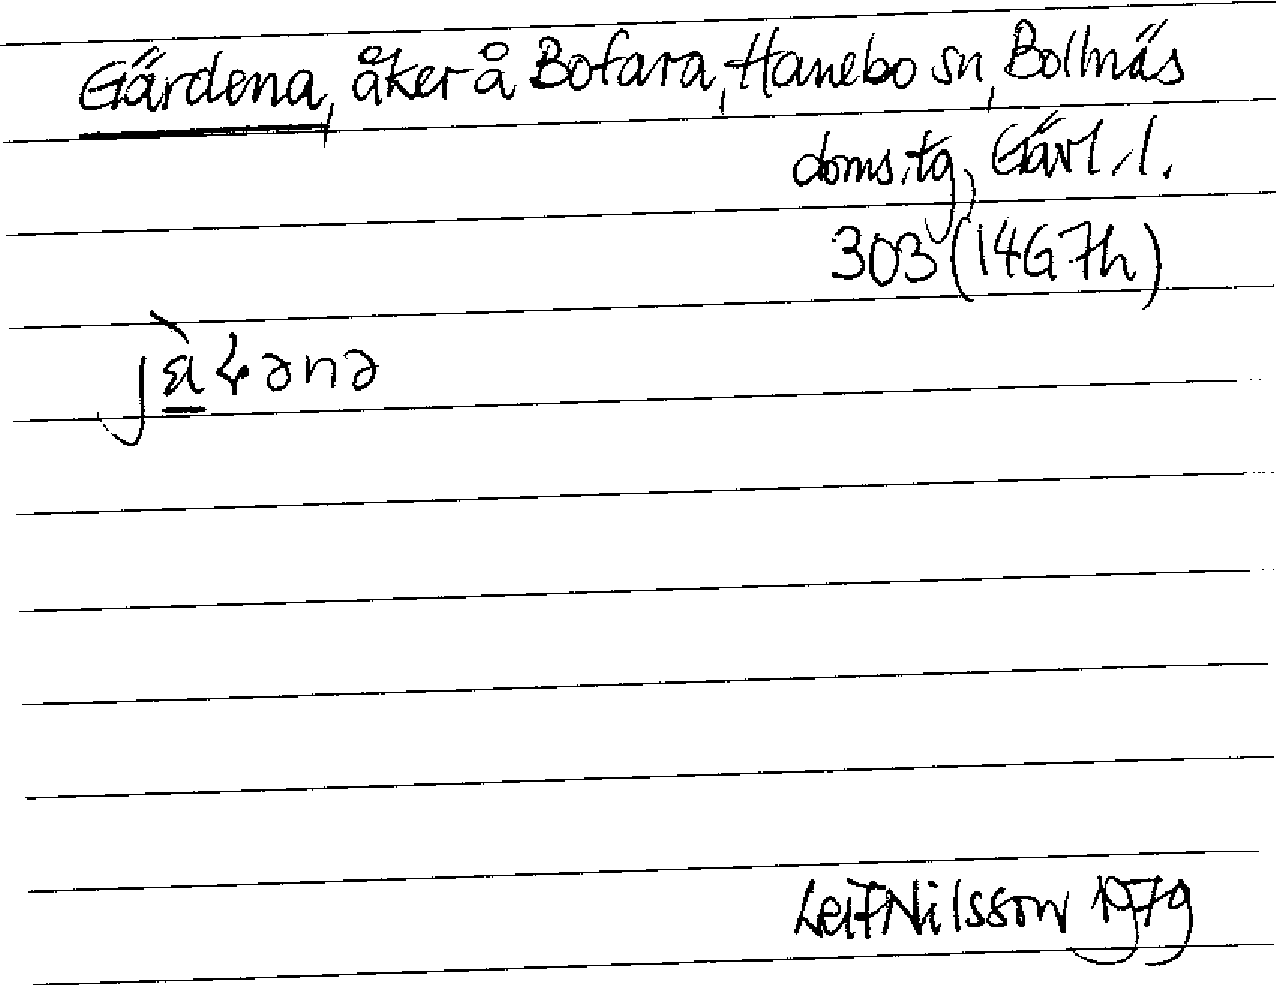 Gärdena, åker å Bofara, Hanebo sn, Bollnäs
doms.tg, Gävl. l.
303 (14G 7h)
Leif Nilsson 1979